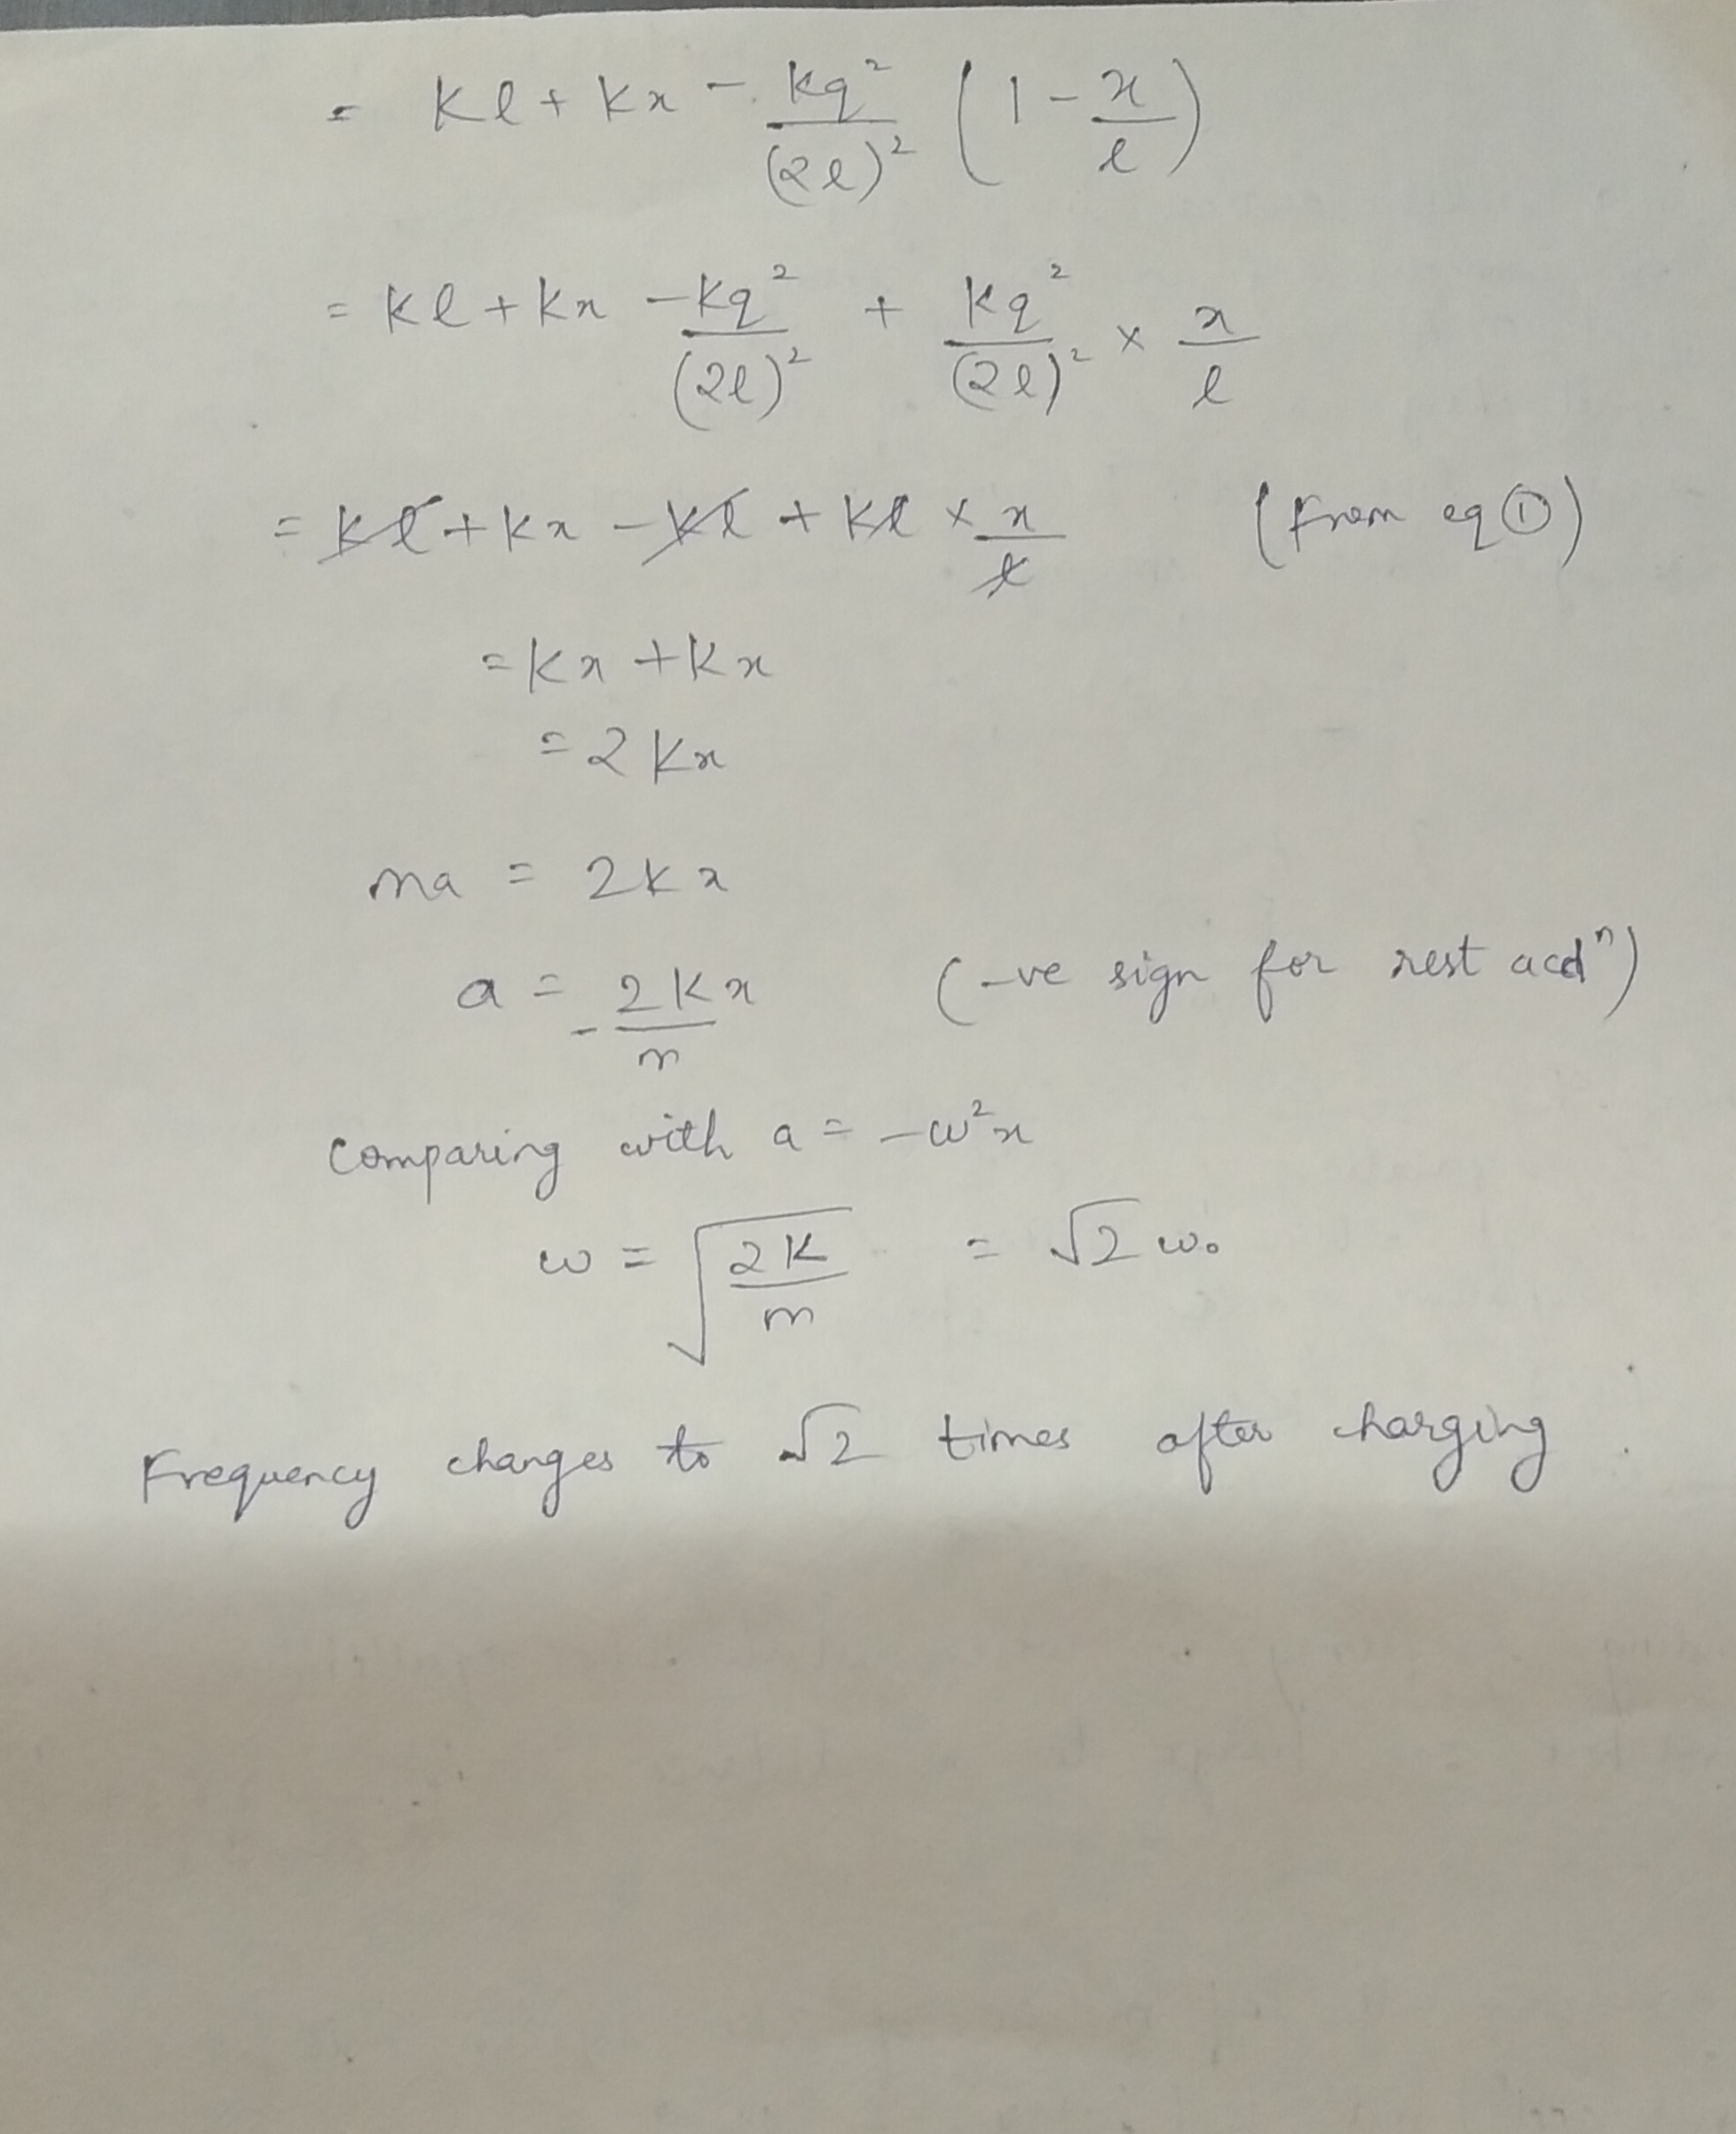 = Kl + Kx - Kq²/(2l)² (1 - x/l)
= Kl + Kx - Kq²/(2l)² + Kq²/(2l)² × x/l
= Kl + Kx - Kl + Kl × x/l (From eq ①)
= Kx + Kx
= 2Kx
ma = 2Kx
a = - 2Kx/m (-ve sign for rest accⁿ)
Comparing with a = -ω²x
ω = √(2K/m) = √2 ω₀
Frequency changes to √2 times after charging.